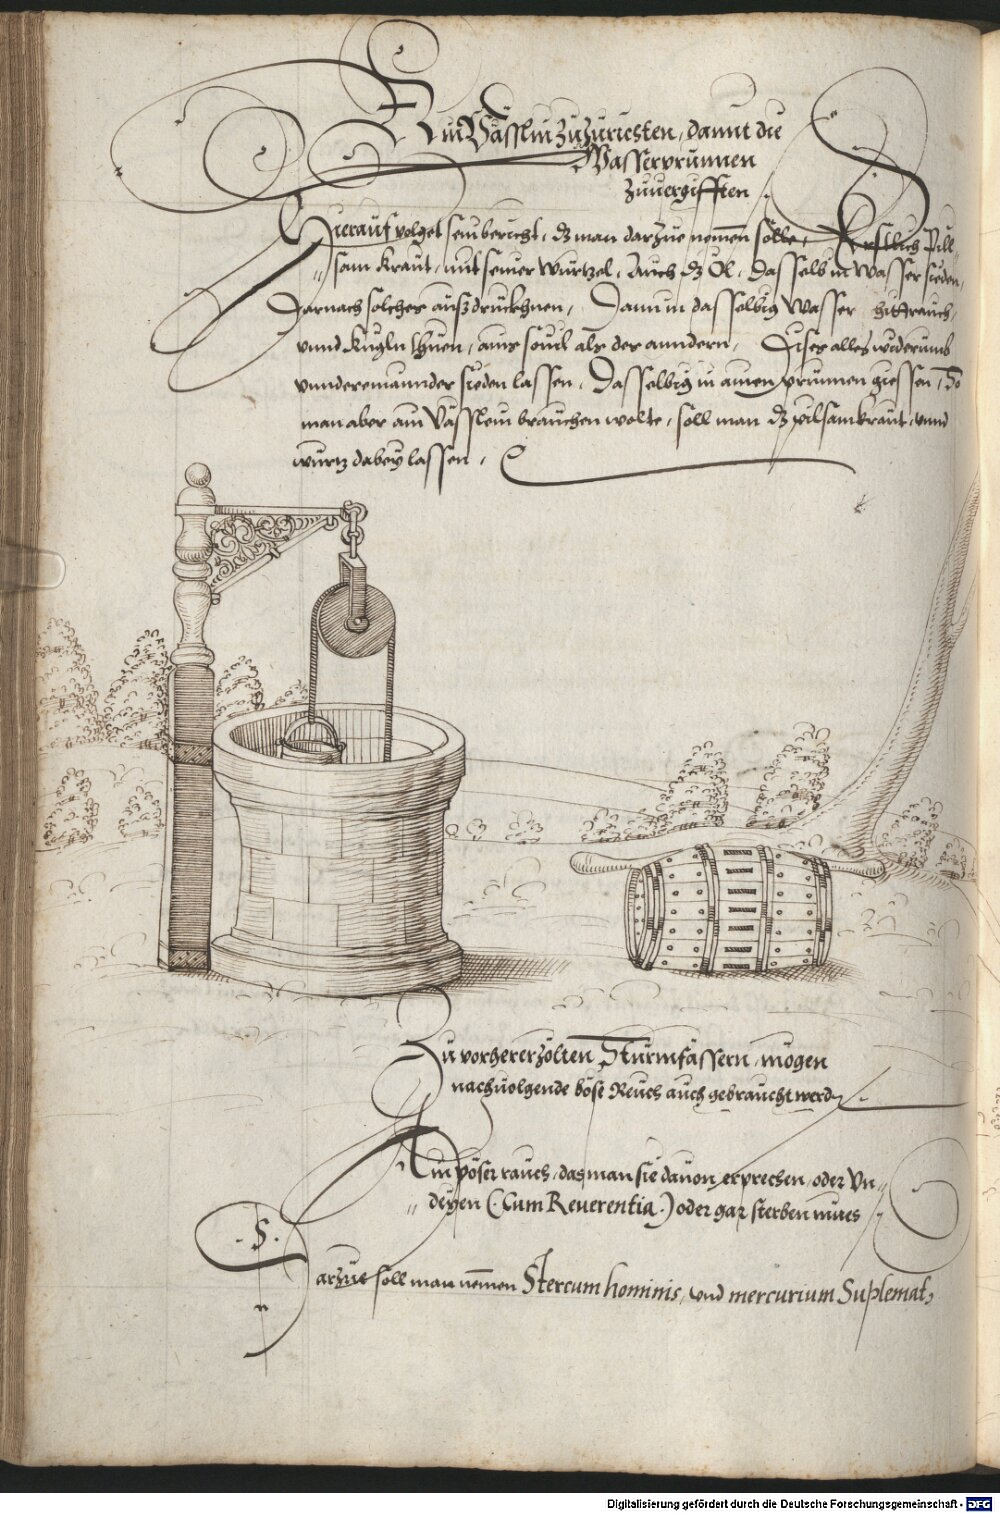 Ein Vässlin zuzuriesten, damit die
Wasserprunnen
zuuergifften.
Hierauf volget sein bericht, dz man darzue nemen solle, Erstlich Pill„
„sam kraut, mit seiner wurtzel, Auch dz Öl, dasselb in wasser sieden,
Darnach solches außdruckhnen, Dann in dasselbig wasser hittrauch,
vnnd kugln thuen, ains souil als des anndern, Dises alles widerumb
vnndereinannder sieden lassen, Dasselbig in ainen prunnen giessen, So
man aber ain Vässlein brauchen wolte, soll man dz pilsamkraut, vnnd
wurtz dabey lassen,
Zu vorhererzölten Sturmfässern, mögen
nachuolgende böse Reuch auch gebraucht werdn
Ain pöser rauch, das man sie dauon erprechen, oder Vn„
„deyen (Cum Reuerentia) oder gar sterben mues
Darzue soll man nemen Stercum hominis, vnd mercurium Suplemat,
Digitalisierung gefördert durch die Deutsche Forschungsgemeinschaft - DFG